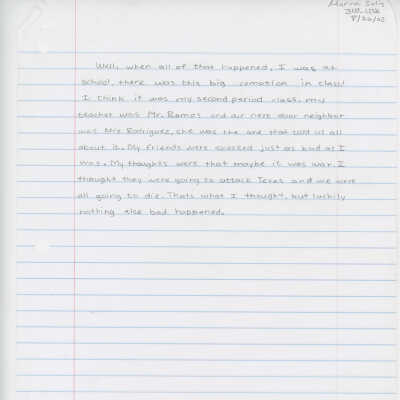 Marina Solis
8/20/02
Well, when all of that happened, I was at
school, there was this big comotion in class!
I think it was my second period class, my
teacher was Mr. Ramos and our next door neighbor
was Mrs Rodriguez, she was the one that told us all
about it. My friends were scared just as bad as I
was. My thoughts were that maybe it was war. I
thought they were going to attack Texas and we were
all going to die. Thats what I thought, but luckily
nothing else bad happened.